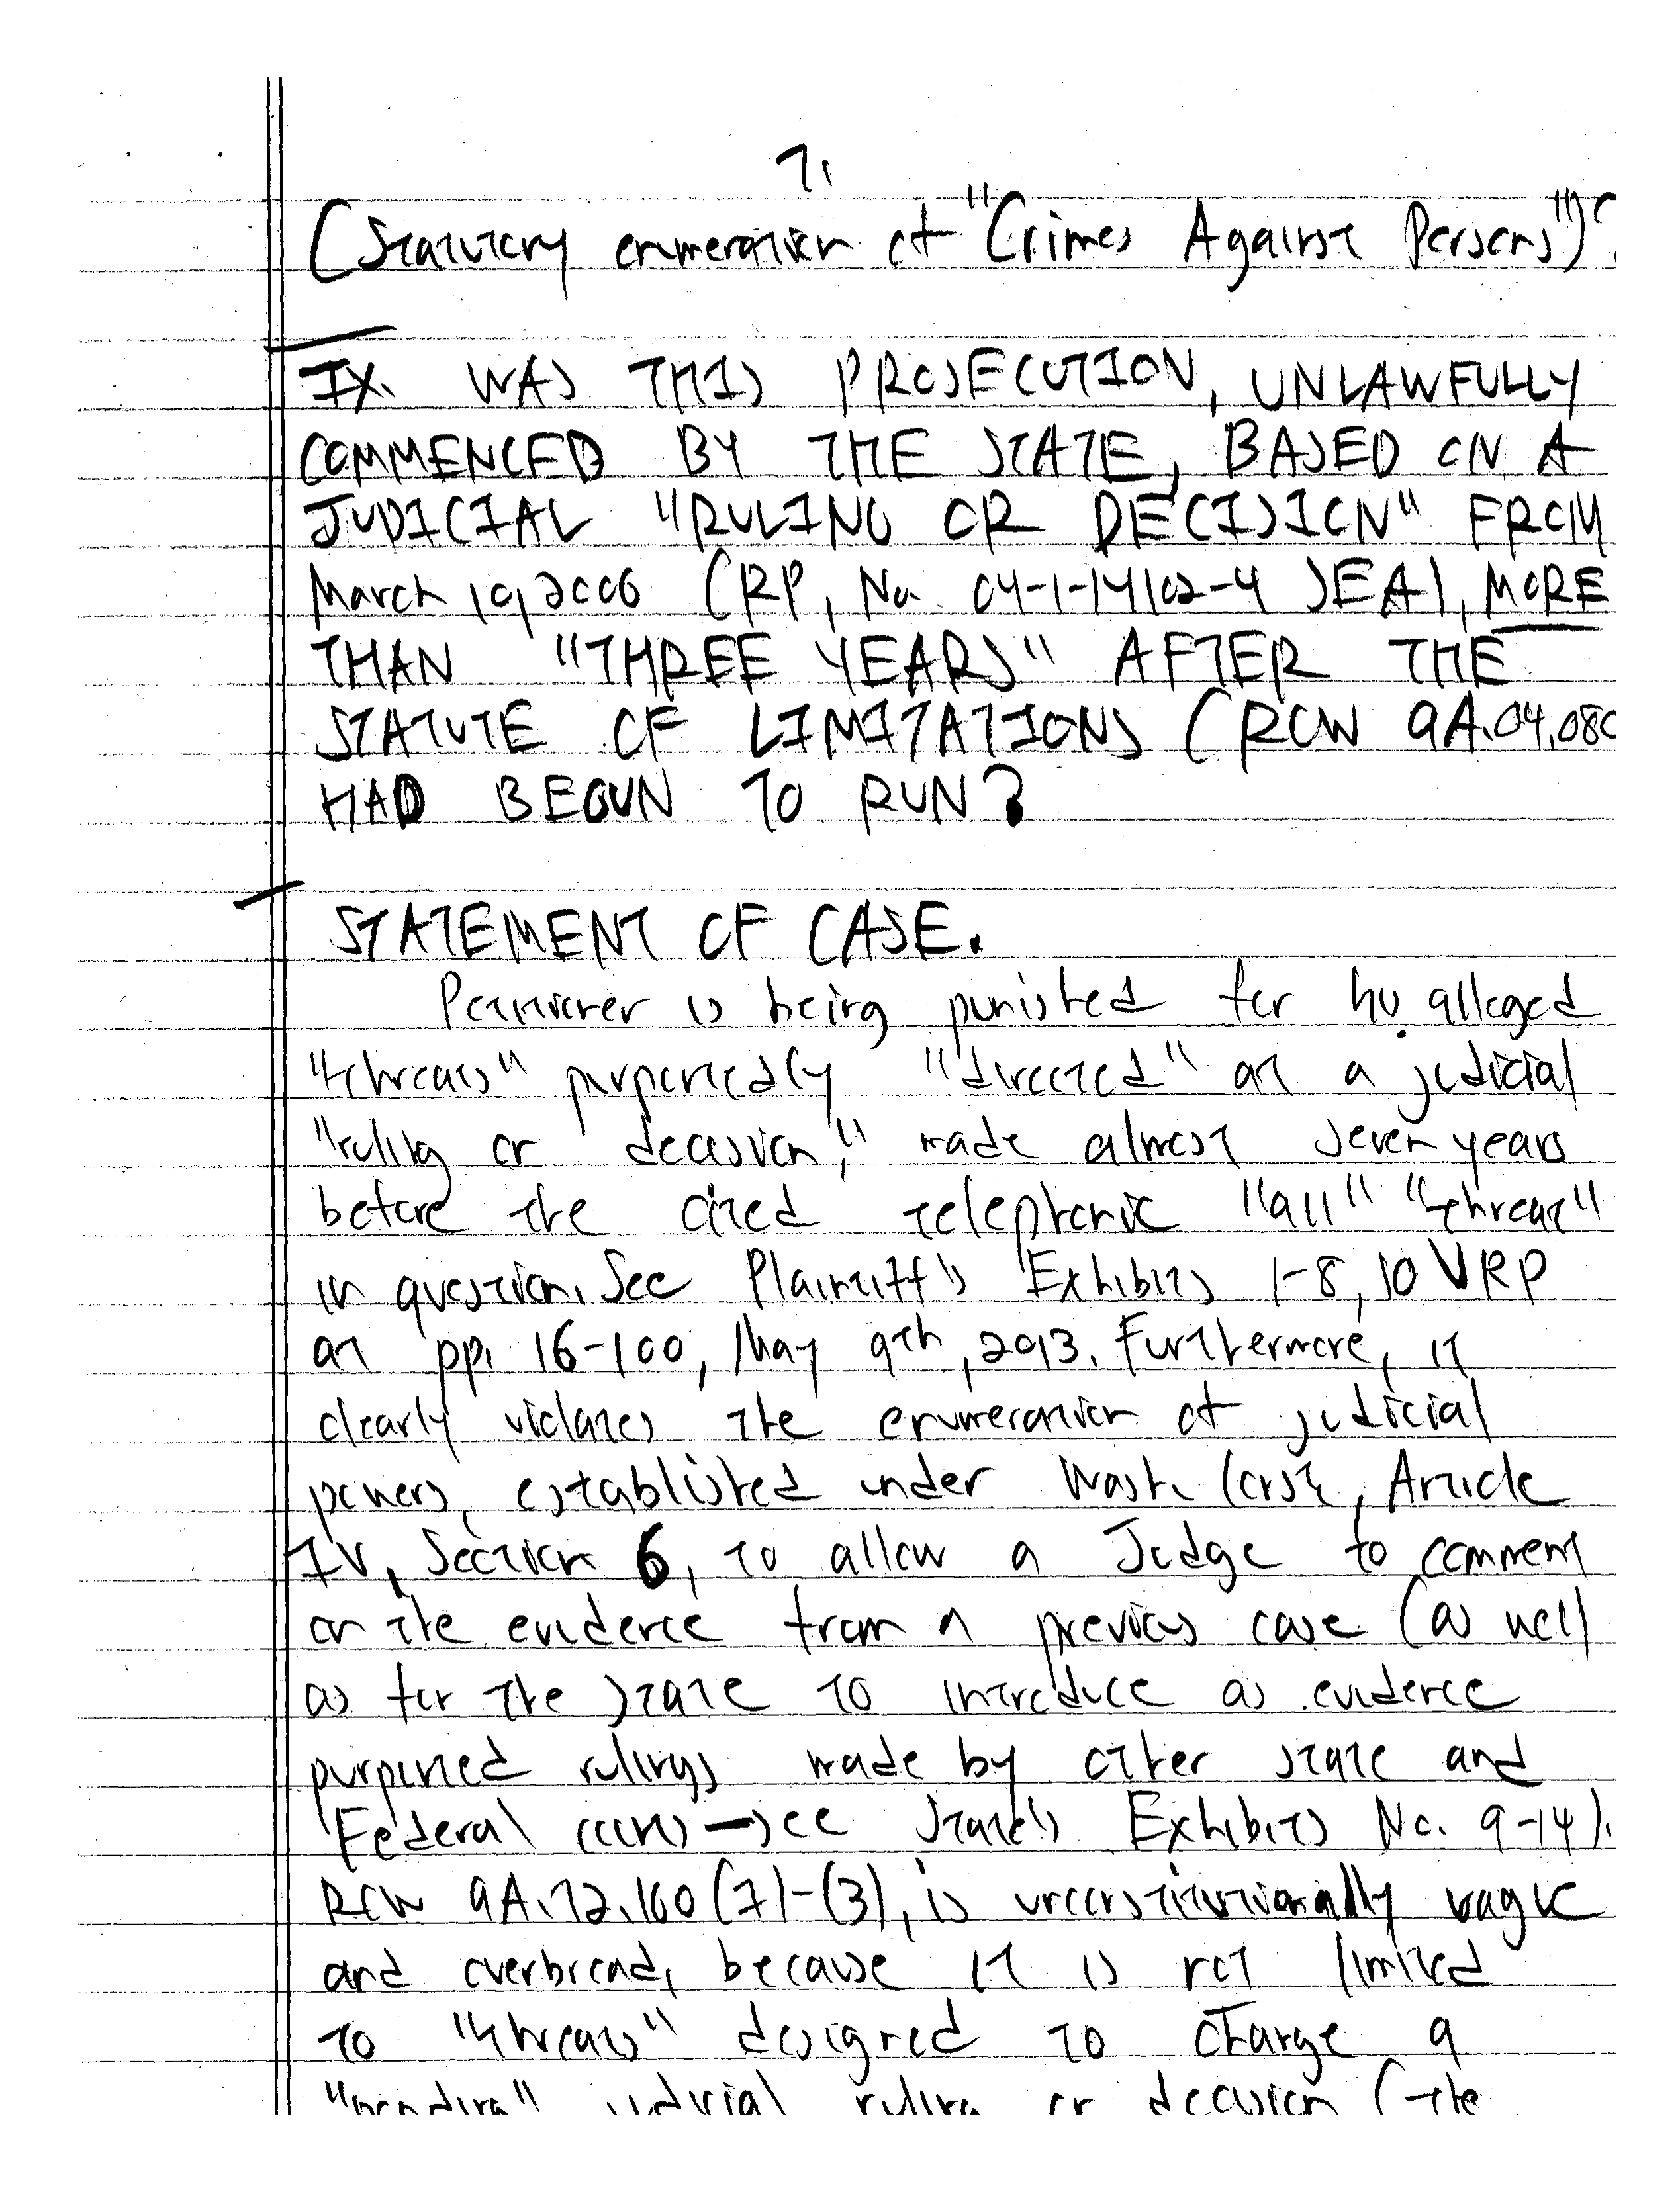 7.
(Statutory enumeration of "Crimes Against Persons")?
IX. WAS THIS PROSECUTION, UNLAWFULLY
COMMENCED BY THE STATE, BASED ON A
JUDICIAL "RULING OR DECISION" FROM
March 10, 2006 (RP, No. 04-1-14102-4 SEA), MORE
THAN "THREE YEARS" AFTER THE
STATUTE OF LIMITATIONS (RCW 9A.04.080
HAD BEGUN TO RUN?
STATEMENT OF CASE.
Petitioner is being punished for his alleged
"threats" purportedly "directed" at a judicial
"ruling or decision," made almost seven years
before the cited telephonic "threat"
in question. See Plaintiff's Exhibits 1-8, 10 VRP
at pp. 16-100, May 9th, 2013. Furthermore, it
clearly violates the enumeration of judicial
powers, established under Wash. Const, Article
IV, Section 6, to allow a Judge to comment
on the evidence from a previous case (as well
as for the State to introduce as evidence
purported rulings made by other state and
Federal courts)→see State's Exhibits No. 9-14).
RCW 9A.72.160 (1)-(3), is unconstitutionally vague
and overbroad, because it is not limited
to "threats" designed to change a
"pending" judicial ruling or decision (the